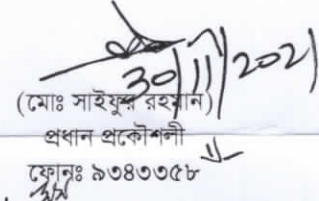 30/11/2021
(মোঃ সাইফুর রহমান)
প্রধান প্রকৌশলী
ফোনঃ ৯৩৪৩৩৫৮